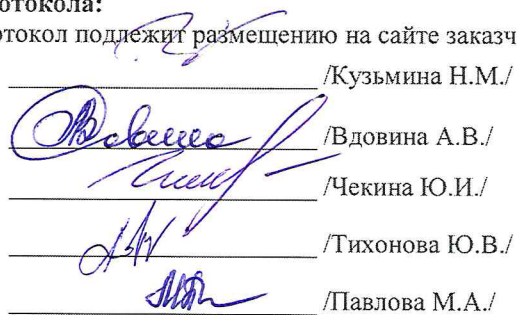 отокола:
отокол подлежит размещению на сайте заказч
/Кузьмина Н.М./
/Вдовина А.В./
/Чекина Ю.И./
/Тихонова Ю.В./
/Павлова М.А./